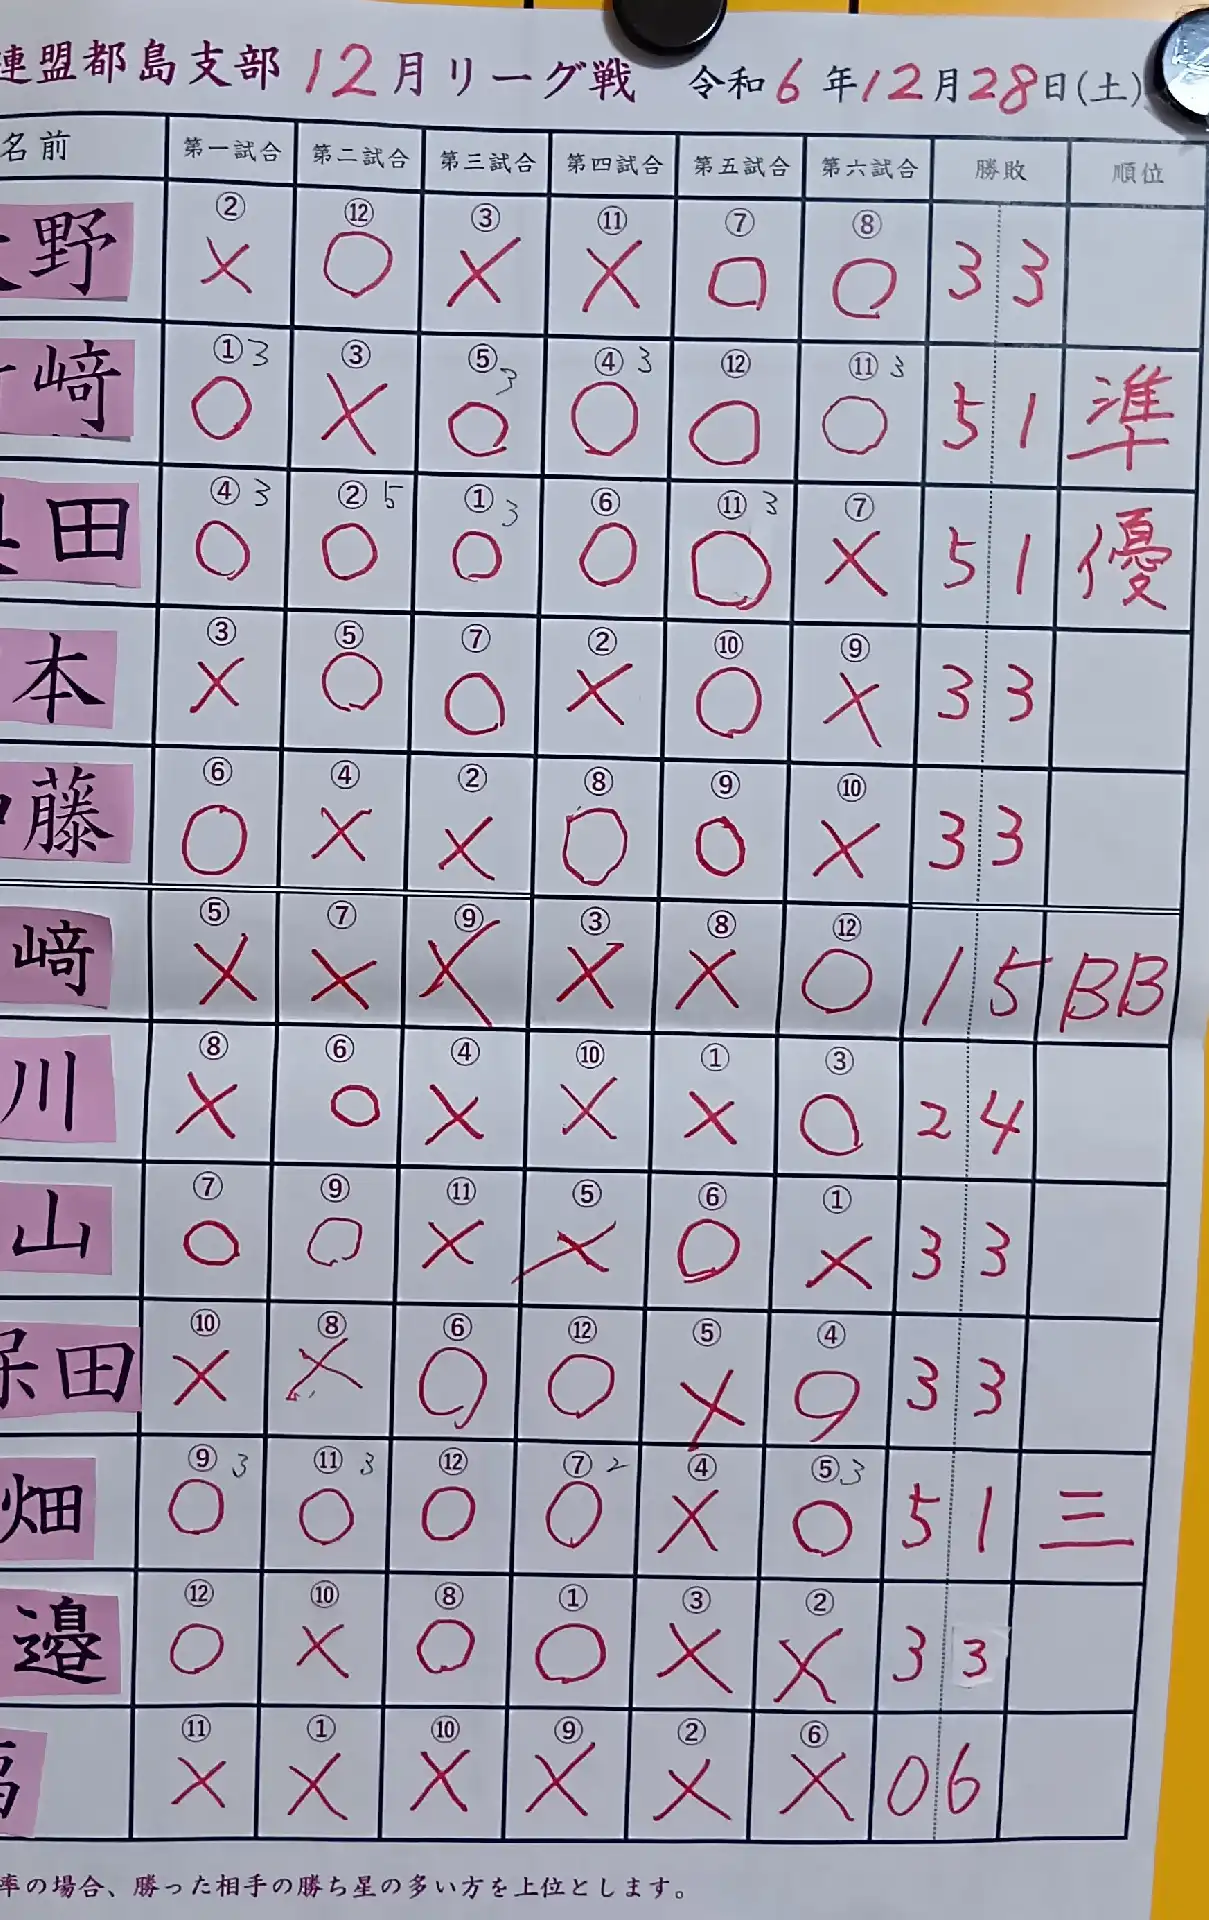 連盟都島支部 12月リーグ戦 令和6年12月28日(土)
名前 第一試合 第二試合 第三試合 第四試合 第五試合 第六試合 勝敗 順位
野 ②× ⑫○ ③× ⑪× ⑦○ ⑧○ 3 3
崎 ①3○ ③× ⑤3○ ④3○ ⑫○ ⑪3○ 5 1 準
田 ④3○ ②5○ ①3○ ⑥○ ⑪3○ ⑦× 5 1 優
本 ③× ⑤○ ⑦○ ②× ⑩○ ⑨× 3 3
藤 ⑥○ ④× ②× ⑧○ ⑨○ ⑩× 3 3
崎 ⑤× ⑦× ⑨× ③× ⑧× ⑫○ 1 5 BB
川 ⑧× ⑥○ ④× ⑩× ①× ③○ 2 4
山 ⑦○ ⑨○ ⑪× ⑤× ⑥○ ①× 3 3
保田 ⑩× ⑧× ⑥○ ⑫○ ⑤× ④○ 3 3
畑 ⑨3○ ⑪3○ ⑫○ ⑦2○ ④× ⑤3○ 5 1 三
邉 ⑫○ ⑩× ⑧○ ①○ ③× ②× 3 3
⑪× ①× ⑩× ⑨× ②× ⑥× 0 6
率の場合、勝った相手の勝ち星の多い方を上位とします。